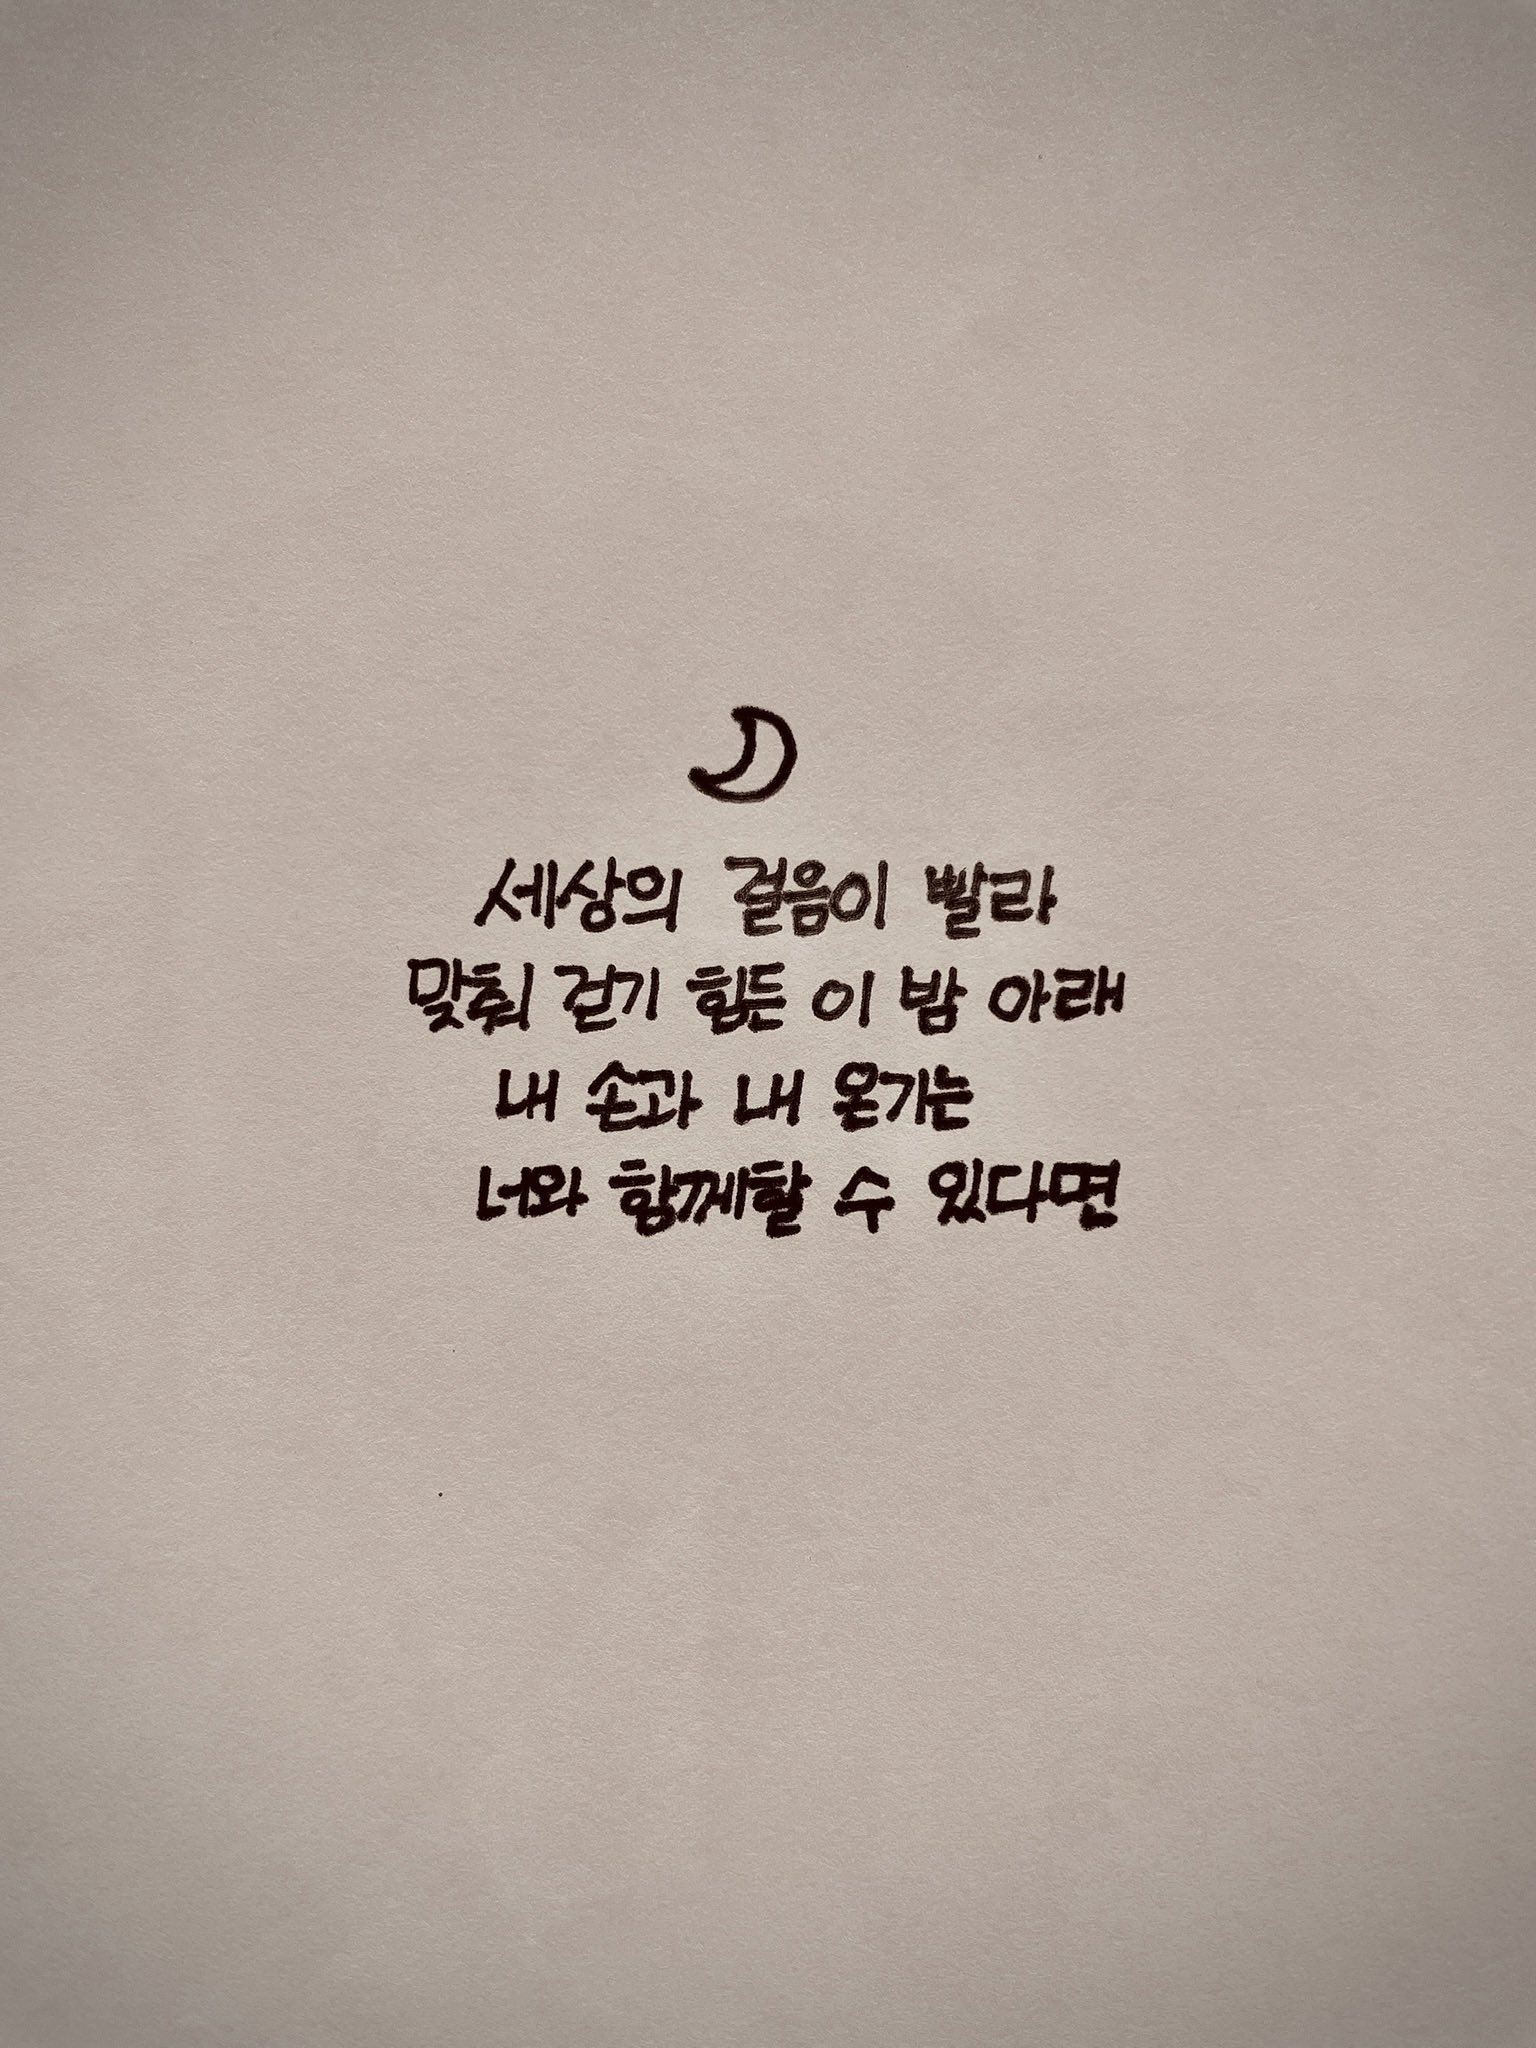 세상의 걸음이 빨라
맞춰 걷기 힘든 이 밤 아래
내 손과 내 온기는
너와 함께할 수 있다면